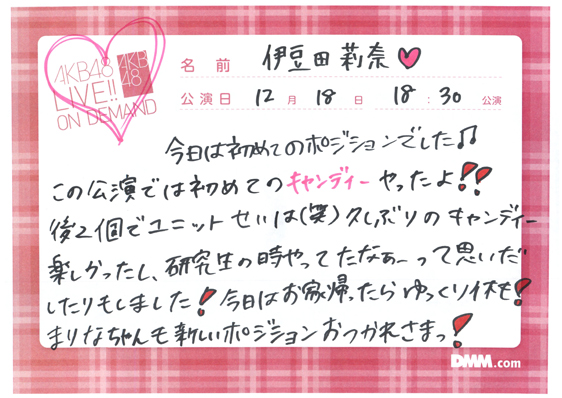 AKB48
LIVE!!
ON DEMAND
AKB
48
名前 伊豆田莉奈♥
公演日 12月18日 18:30公演
今日は初めてのポジションでした♫
この公演では初めてのキャンディーやったよ!!
後2個でユニットせいは(笑)久しぶりのキャンディー
楽しかったし、研究生の時やってたなぁーって思いだ
したりもしました!今日はお家帰ったらゆっくり休も!
まりなちゃんも新しいポジションおつかれさまっ!
DMM.com